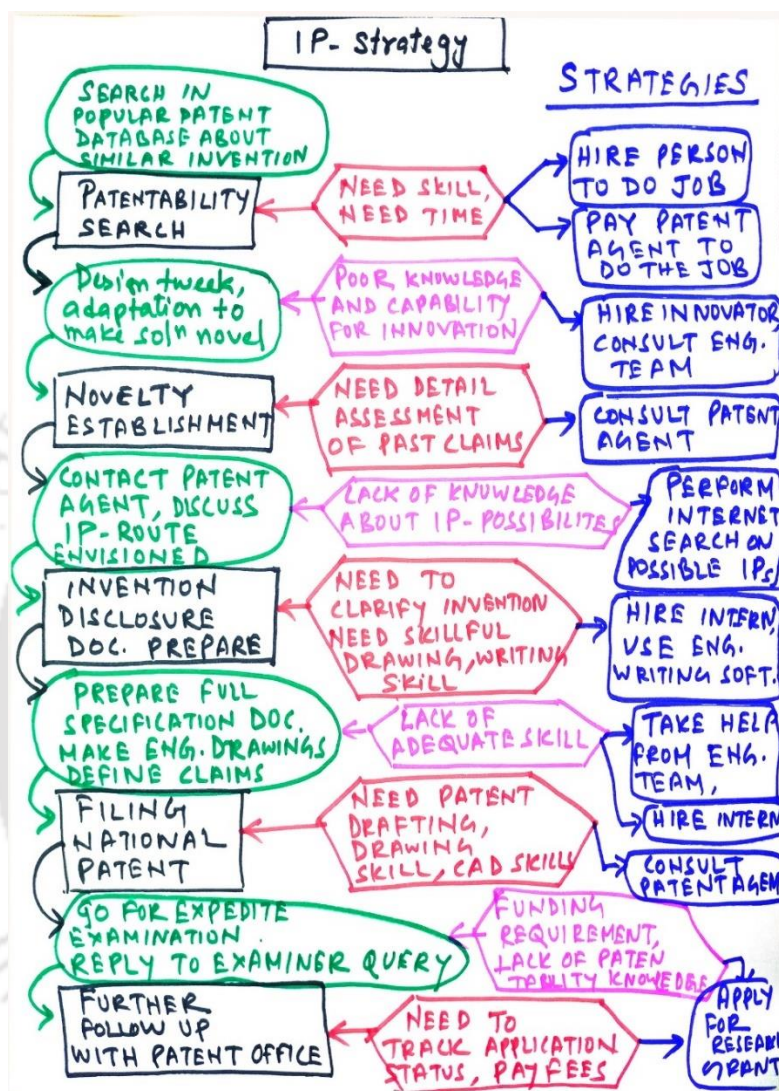 IP- Strategy
STRATEGIES
SEARCH IN
POPULAR PATENT
DATABASE ABOUT
SIMILAR INVENTION
PATENTABILITY
SEARCH
NEED SKILL,
NEED TIME
HIRE PERSON
TO DO JOB
PAY PATENT
AGENT TO
DO THE JOB
Design tweek,
adaptation to
make solⁿ novel
POOR KNOWLEDGE
AND CAPABILITY
FOR INNOVATION
HIRE INNOVATOR
CONSULT ENG.
TEAM
NOVELTY
ESTABLISHMENT
NEED DETAIL
ASSESSMENT
OF PAST CLAIMS
CONSULT PATENT
AGENT
CONTACT PATENT
AGENT, DISCUSS
IP-ROUTE
ENVISIONED
LACK OF KNOWLEDGE
ABOUT IP-POSSIBILITES
PERFORM
INTERNET
SEARCH ON
POSSIBLE IPs
INVENTION
DISCLOSURE
DOC. PREPARE
NEED TO
CLARIFY INVENTION
NEED SKILLFUL
DRAWING, WRITING
SKILL
HIRE INTERN,
USE ENG.
WRITING SOFT.
PREPARE FULL
SPECIFICATION DOC.
MAKE ENG. DRAWINGS
DEFINE CLAIMS
LACK OF
ADEQUATE SKILL
TAKE HELP
FROM ENG.
TEAM,
HIRE INTERN
FILING
NATIONAL
PATENT
NEED PATENT
DRAFTING,
DRAWING
SKILL, CAD SKILLS
CONSULT
PATENT AGEN
GO FOR EXPEDITE
EXAMINATION
REPLY TO EXAMINER QUERY
FUNDING
REQUIREMENT,
LACK OF PATEN
TABILITY KNOWLEDGE
FURTHER
FOLLOW UP
WITH PATENT OFFICE
NEED TO
TRACK APPLICATION
STATUS, PAY FEES
APPLY
FOR
RESEAR
GRANT